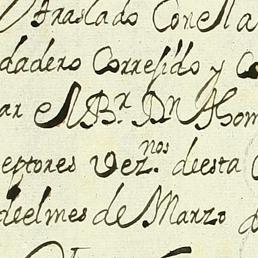 traslado Con el a
dadero Corresido y Co
ar el Br. Dn Thom
ceptores Vez.nos de esta C
de el mes de Marzo d